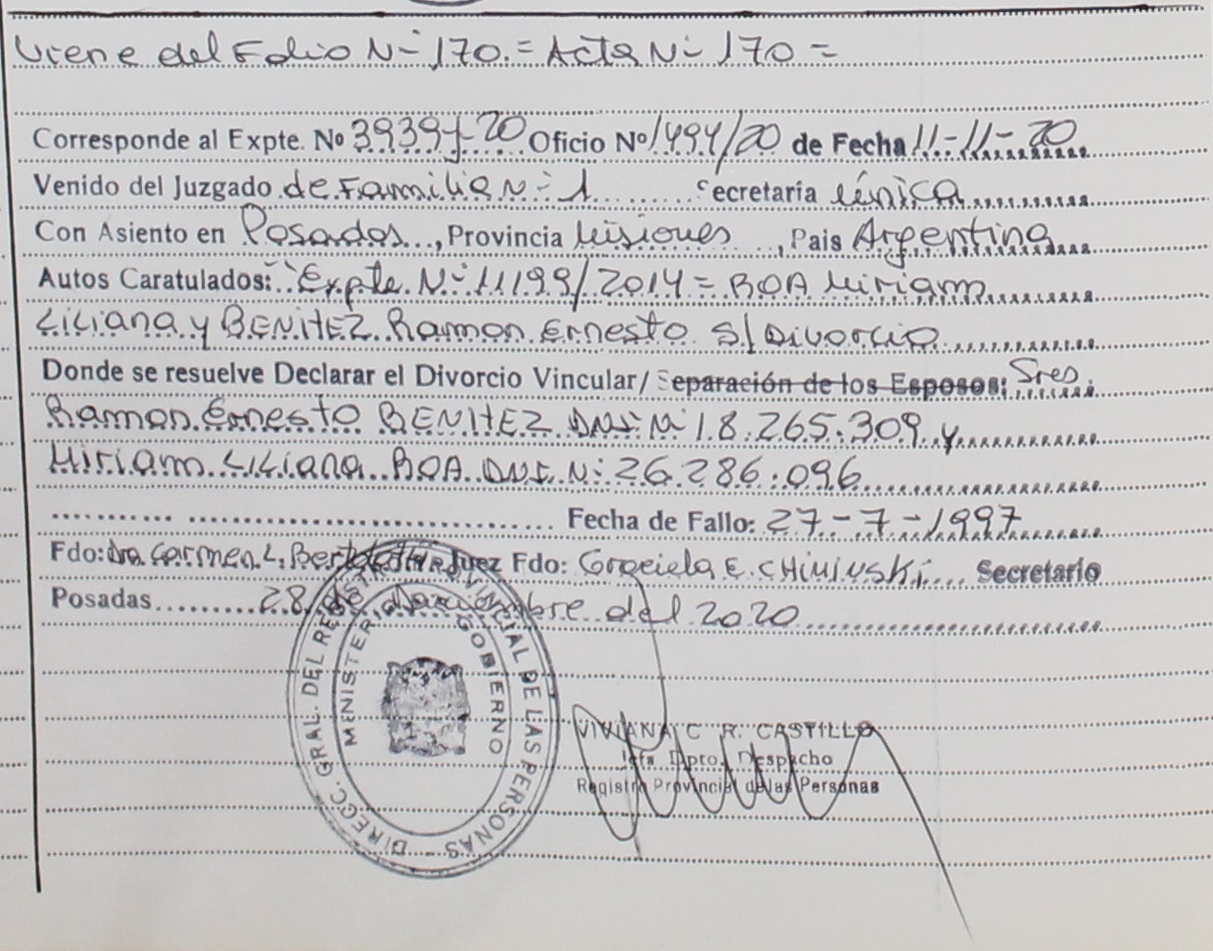 Viene del Folio Nº 170.= Acta Nº 170 =
Corresponde al Expte. No 3939-J-20 Oficio Nº 1494/20 de Fecha 11-11-20
Venido del Juzgado de Familia Nº 1 Secretaria Única
Con Asiento en Posadas, Provincia Misiones, Pais Argentina
Autos Caratulados: Expte. Nº 11199/2014 = BOA Miriam
Liliana y BENITEZ Ramon Ernesto S/ Divorcio
Donde se resuelve Declarar el Divorcio Vincular/ Separación de los Esposos: Sres.
Ramon Ernesto BENITEZ DNI Nº 18.265.309 y
Miriam Liliana BOA DNI. Nº 26.286.096
Fecha de Fallo: 27-7-1997
Fdo: Dra Carmen L. Juez Fdo: Graciela E. Secretario
Posadas 28 de del 2020
DIRECC. GRAL. DEL REGISTRO PROVINCIAL DE LAS PERSONAS
MINISTERIO GOBIERNO
VIVIANA C R. CASTILLO
Jefa Dpto. Despacho
Registro Provincial de las Personas